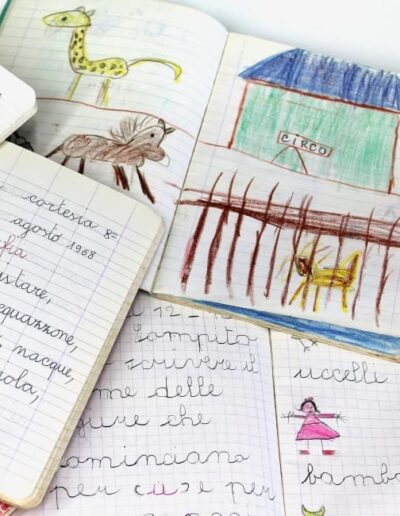 CIRCO
cortesia 8=
agosto 1968
fia
stare,
equazzone,
nacque,
ola,
12 -
Compito
scrivere il
me delle
gure che
ominciano
per «u» e per
uccelli
bambo